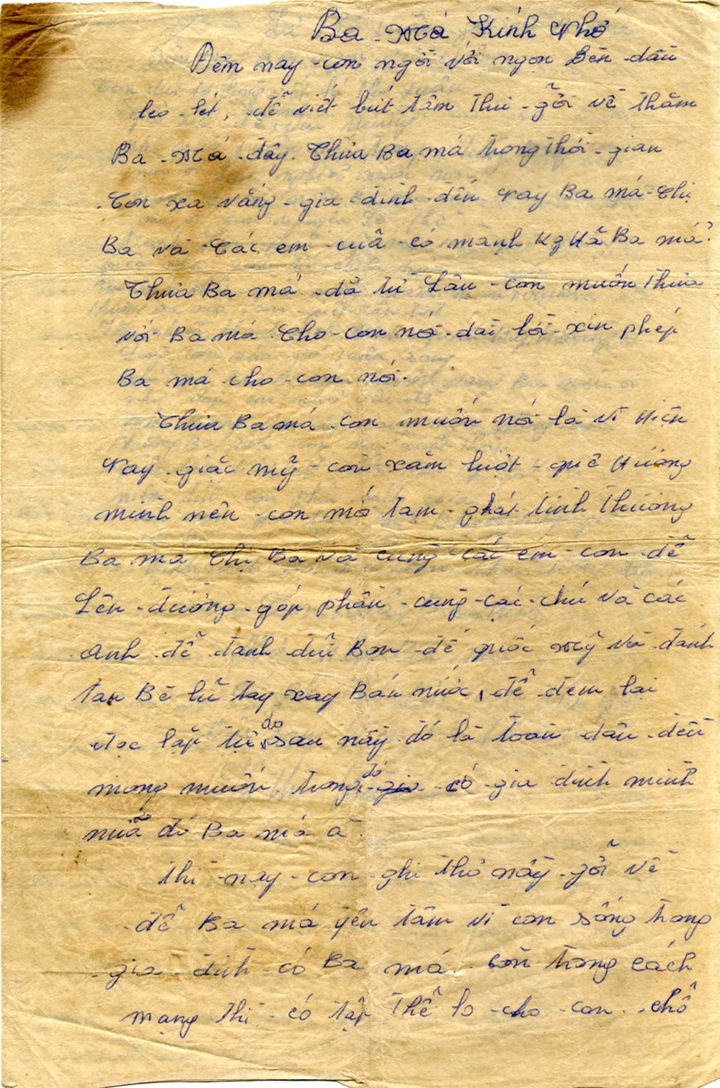 Ba - Má Kính Nhớ
Đêm nay - con ngồi với ngọn đèn - dầu
leo - lét, để viết bút tâm thư - gởi về thăm
Ba - Má - đây. Thưa Ba má trong thời - gian
Con xa vắng - gia - đình - đến nay Ba má - Chị
Ba và Các em - cuã - có mạnh kg Hả Ba má?
Thưa Ba má - đã từ Lâu - con muốn Thưa
với Ba má Cho - con nói - dài lời - xin phép
Ba má - cho - con nói.
Thưa Ba má con muốn nói là vì Hiện
nay - giặc mỹ - còn xăm lượt - quê Hương
mình nên - con mới tạm - ghát tình thương
Ba má Chị Ba và cùng - các em - con - để
Lên - đường - góp phần - cùng - các - chú và các
anh để đánh đuổi Bọn - đế quốc Mỹ và - đánh
tan Bè lũ tay xay Bán nước, để - đem lại
độc lập tự do sau nầy đó là toàn dân - đều
mong muốn, trong đó - có - gia đình mình
nuã đó Ba má à.
Thì - nay - con - ghi thơ nầy - gởi về
để Ba má yên tâm vì con sống trong
gia - đình - có Ba má còn trong cách
mạng thì - có tập thể lo - cho - con - chổ